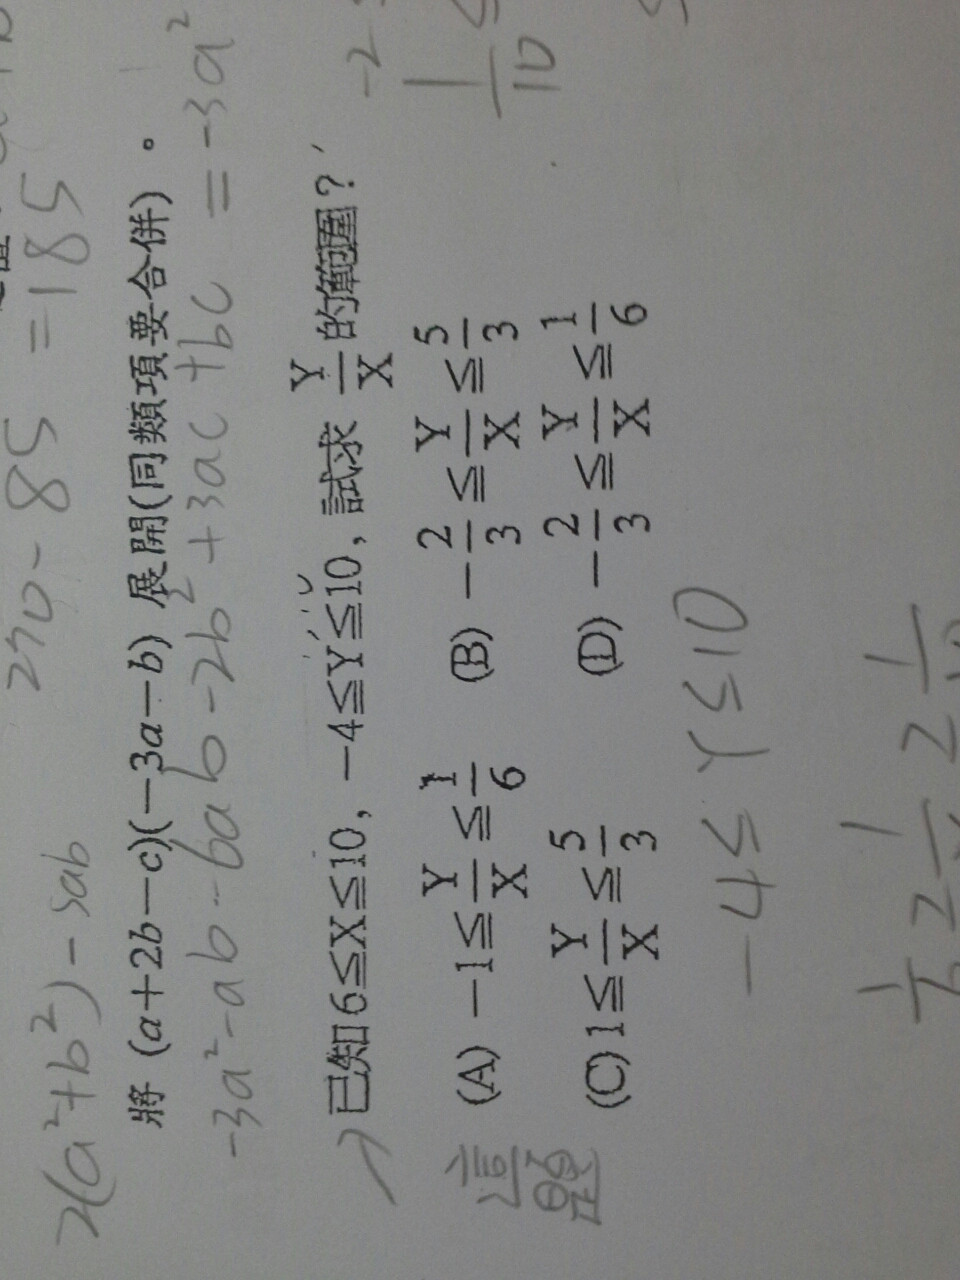 270-85=185
2(a²+b²)-5ab
將 (a+2b-c)(-3a-b) 展開(同類項要合併)。
-3a²-ab-6ab-2b²+3ac+bc=-3a²
已知6≦X≦10,-4≦Y≦10,試求 Y/X 的範圍?
(A) -1≦Y/X≦1/6 (B) -2/3≦Y/X≦5/3
(C) 1≦Y/X≦5/3 (D) -2/3≦Y/X≦1/6
這題
-4≤Y≤10
1/10